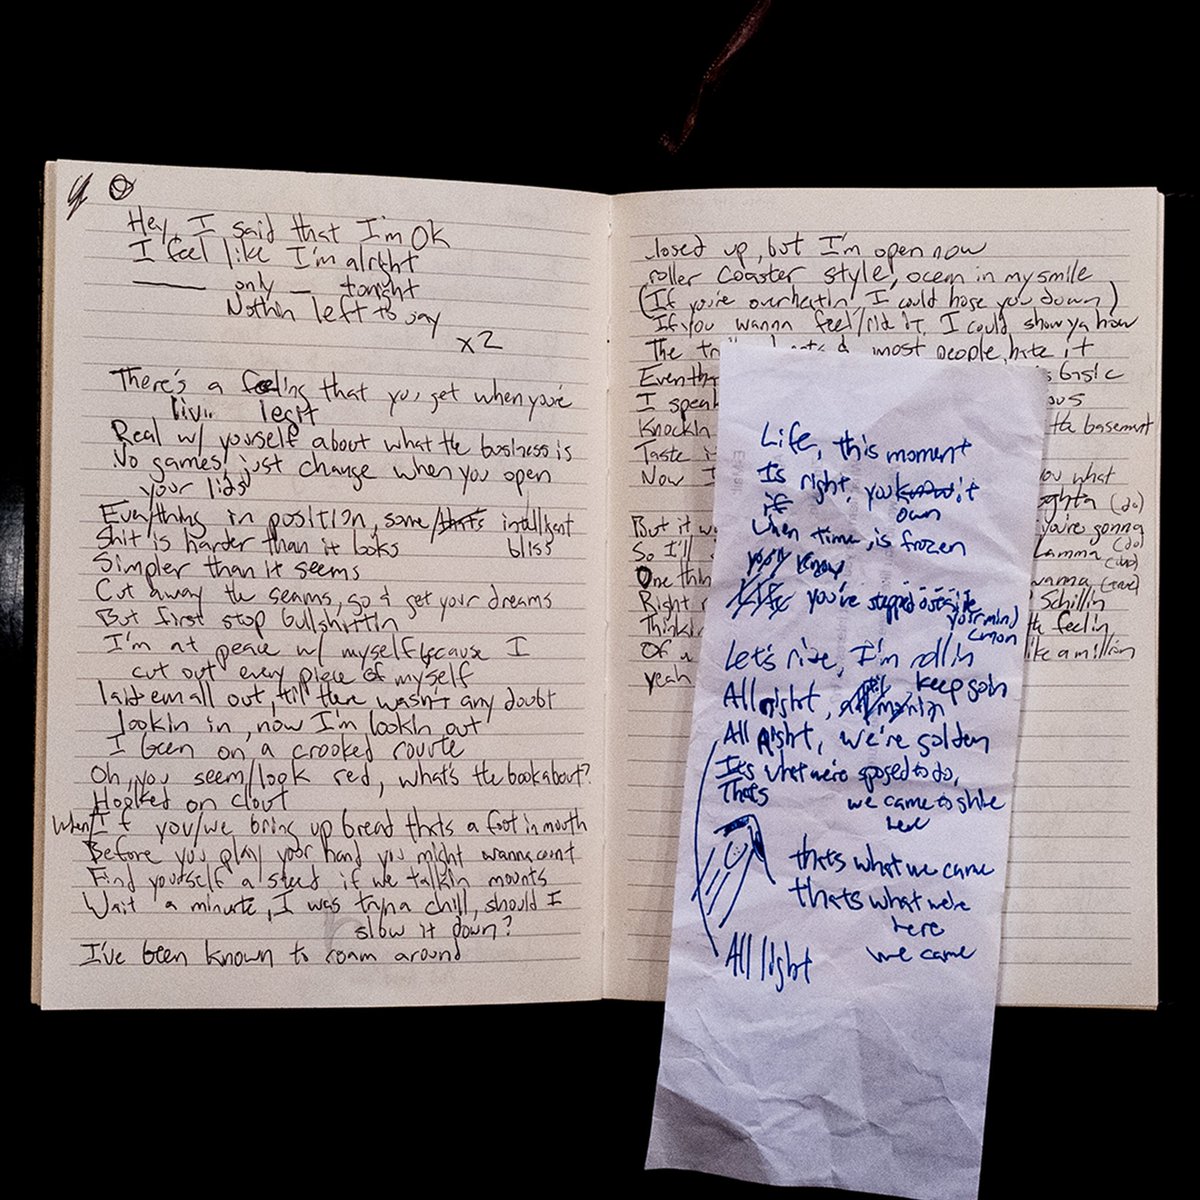 Hey, I said that I'm OK
I feel like I'm alright
only tonight
Nothin left to say
x2
There's a feeling that you get when you're
livin legit
Real w/ yourself about what the business is
No games, just change when you open
your lids
Everything in position, some/thats intelligent
bliss
Shit is harder than it looks
Simpler than it seems
Cut away the seams, go & get your dreams
But first stop bullshittin
I'm at peace w/ myself because I
cut out every piece of myself
laid em all out, till there wasn't any doubt
lookin in, now I'm lookin out
I been on a crooked route
Oh, you seem/look red, what's the book about?
Hooked on clout
When/If you/we bring up bread thats a foot in mouth
Before you play your hand you might wanna count
Find yourself a steed if we talkin mounts
Wait a minute, I was tryna chill, should I
slow it down?
I've been known to roam around
closed up, but I'm open now
roller coaster style, ocean in my smile
(If you're overheatin, I could hose you down)
If you wanna feel/ride it, I could show ya how
The most people hate it
is basic
I
Knockin the basement
Taste
Now I you what
(do)
But it you're gonna
So I'll (do)
One
Right Schillin
the feelin
Of like a million
yeah
Life, this moment
Is right, you know it
own
When time, is frozen
you'll know
Life you're stepped outside
your mind
cmon
Let's ride, I'm rollin
All right, keep goin
All right, we're golden
It's what we're sposed to do,
Thats we came to shine
here
thats what we came
thats what we're
here
we came
All light